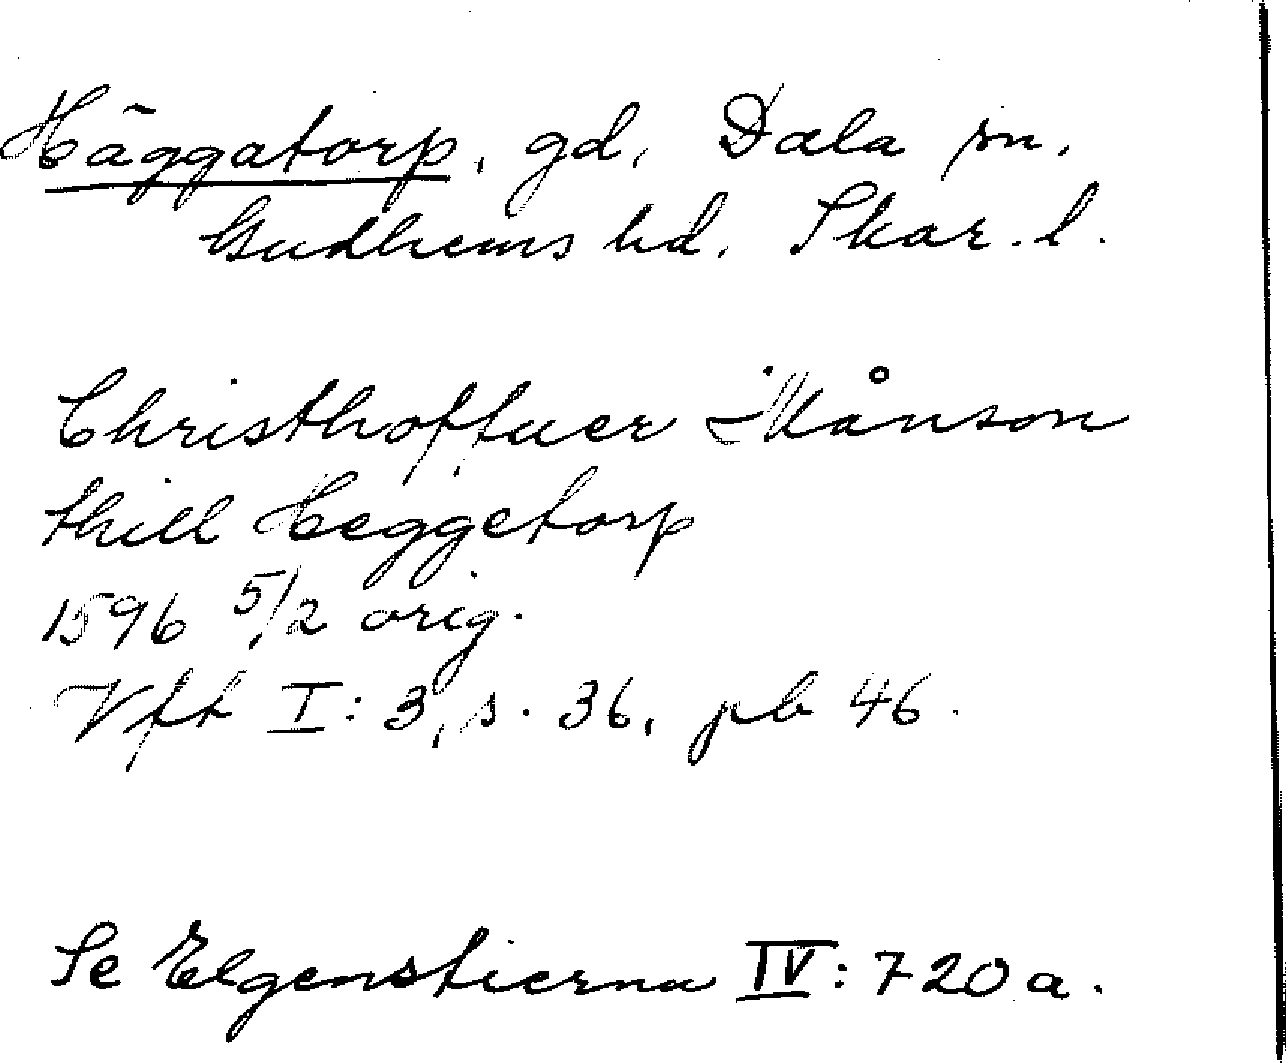 Häggatorp, gd, Dala sn,
Gudhems hd. Skar. l.
Christhoffuer Månson
thill Heggetorp
1596 5/2 orig.
Vft I: 3, s. 36, pb 46.
Se Elgenstierna IV: 720 a.